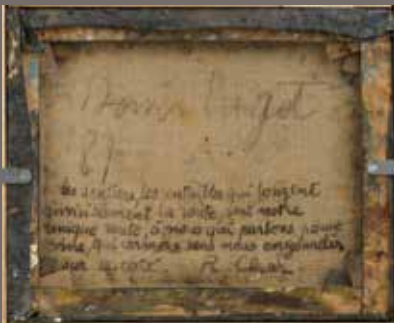 Denis Laget
87
les sentiers, les entailles qui longent
invisiblement la route, sont notre
unique route, à nous qui parlons pour
vivre, qui dormons sans nous engourdir
sur le coté. R. Char.